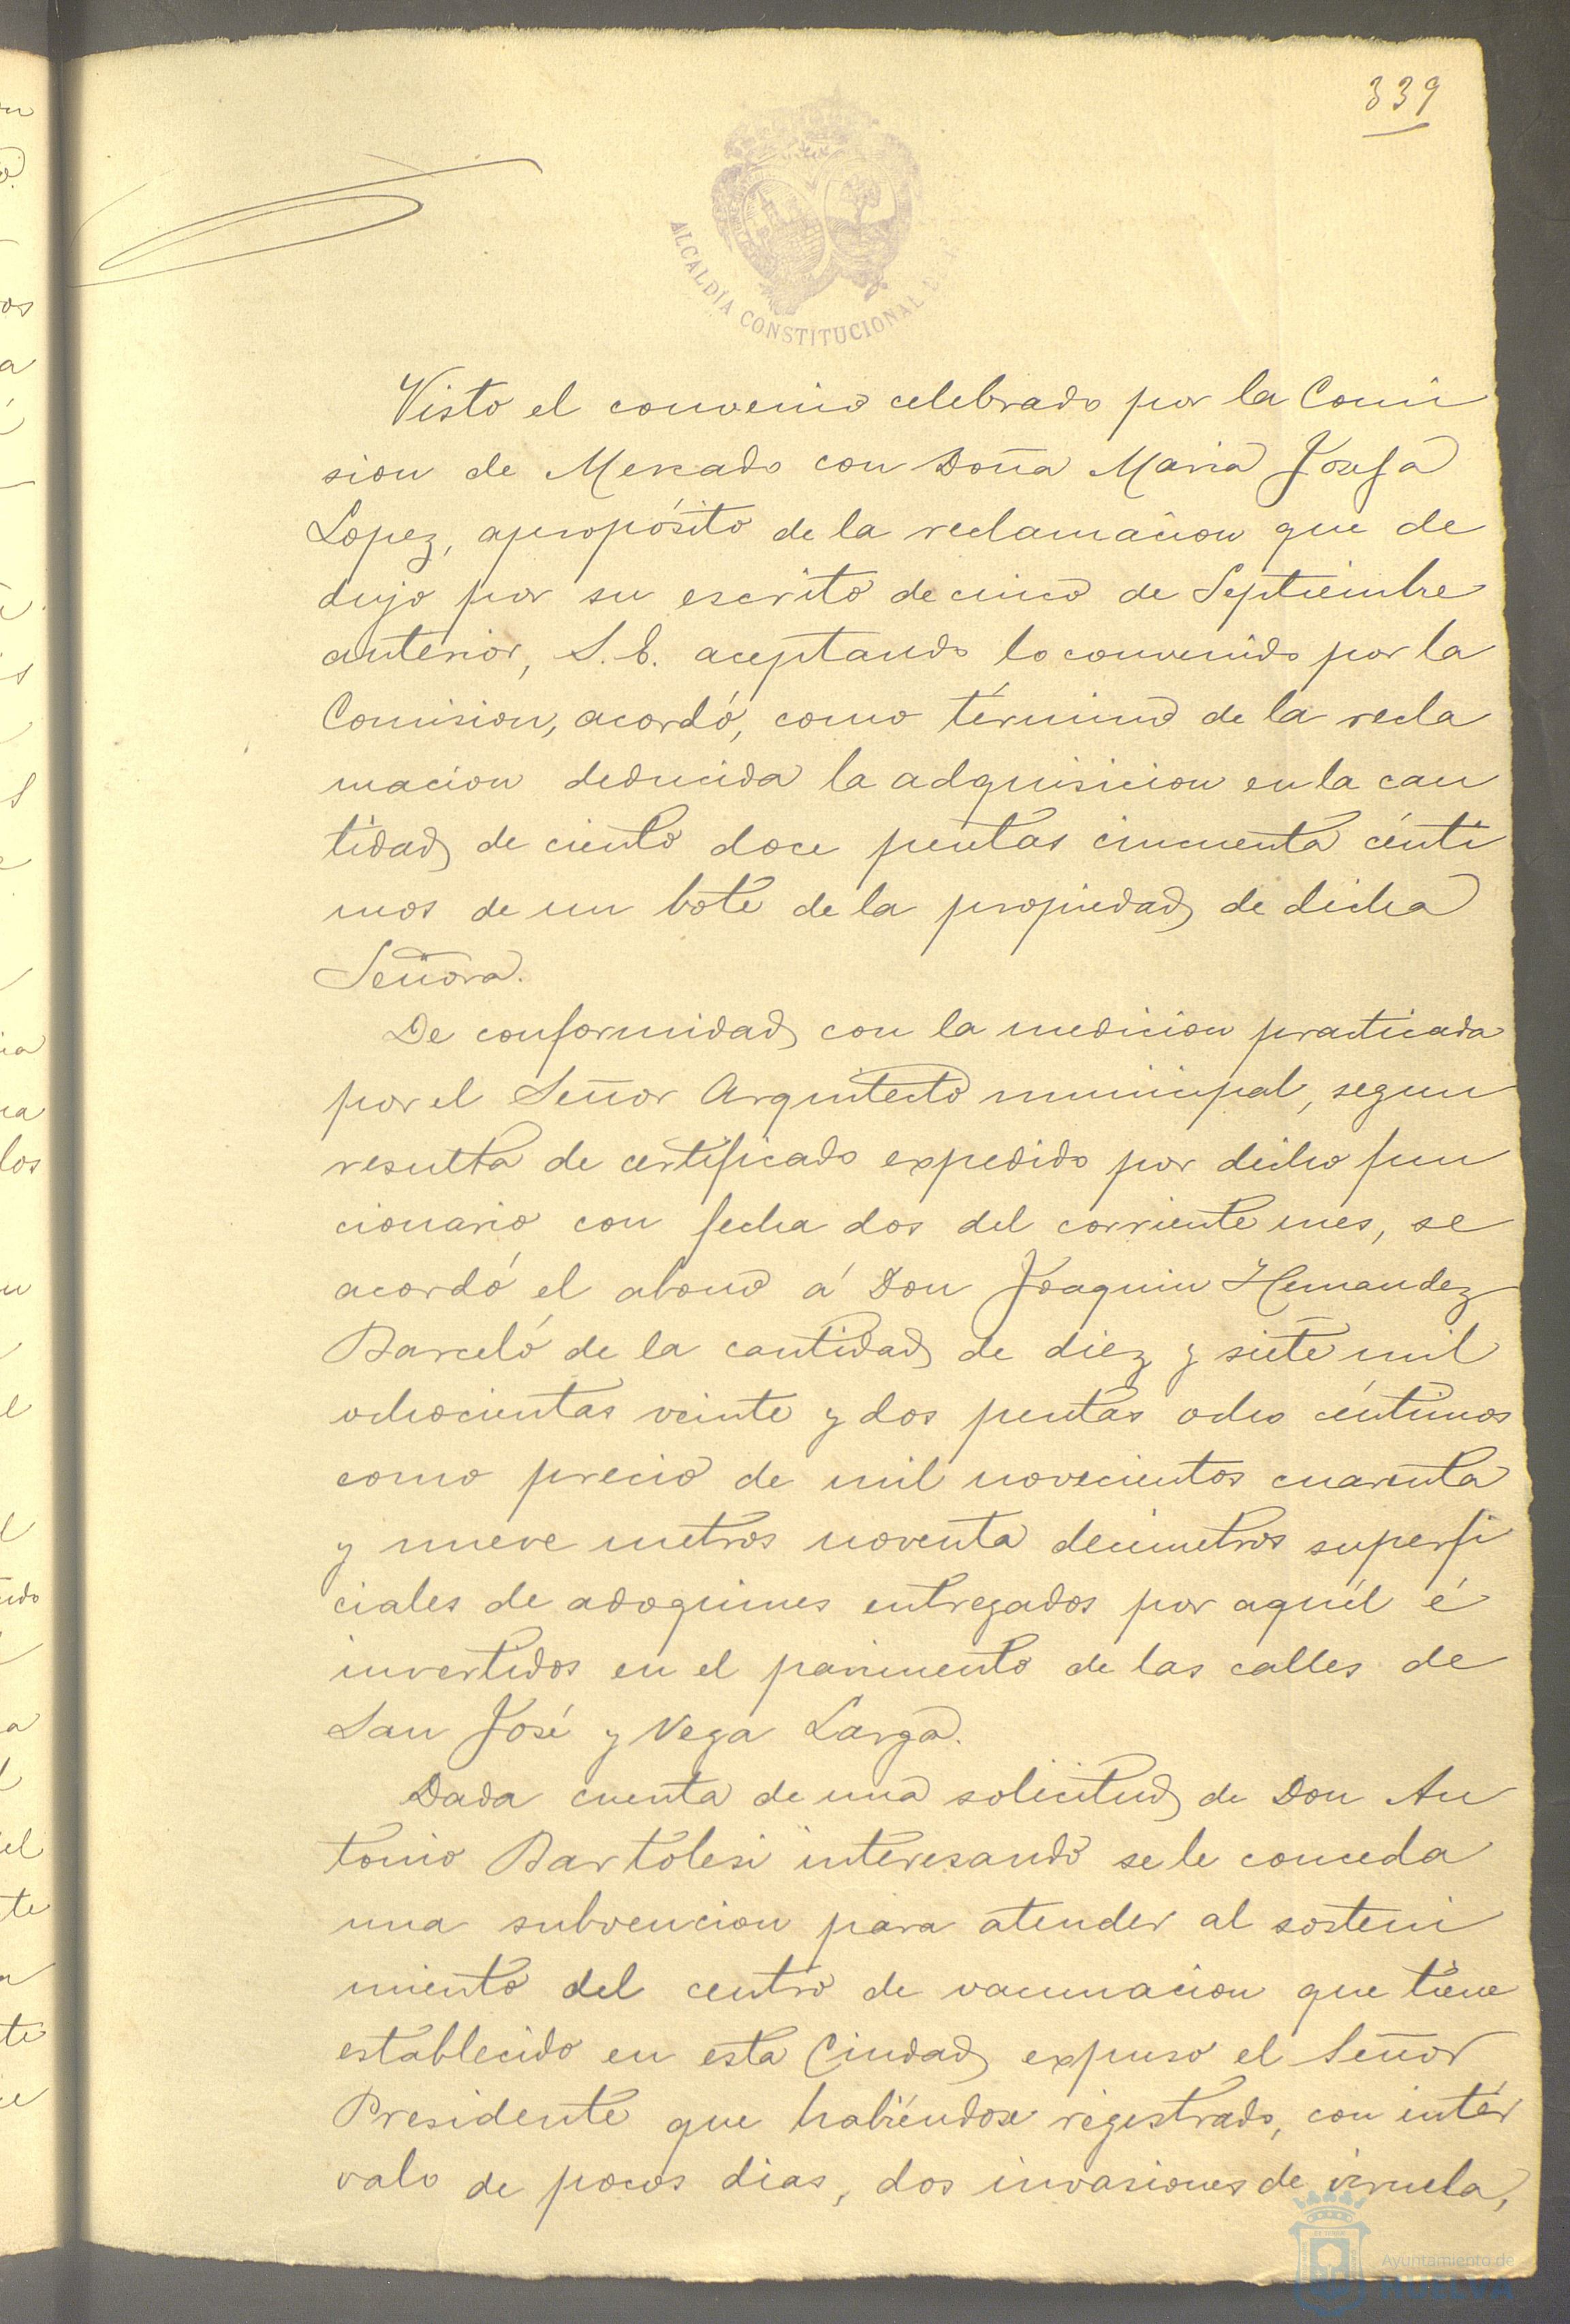 339
ALCALDÍA CONSTITUCIONAL DE
Visto el convenio celebrado por la Comi
sion de Mercado con Doña Maria Josefa
Lopez, apropósito de la reclamacion que de
dujo por su escrito de cinco de Septiembre
anterior, S. E. aceptando lo convenido por la
Comision, acordó, como término de la recla
macion deducida la adquisicion en la can
tidad de ciento doce pesetas cincuenta cénti
mos de un bote de la propiedad de dicha
Señora.
De conformidad con la medicion practicada
por el Señor Arquitecto municipal, segun
resulta de certificado expedido por dicho fun
cionario con fecha dos del corriente mes, se
acordó el abono á Don Joaquin Hernandez
Barceló de la cantidad de diez y siete mil
ochocientas veinte y dos pesetas ocho céntimos
como precio de mil novecientos cuarenta
y nueve metros noventa decimetros superfi
ciales de adoquines entregados por aquél é
invertidos en el pavimento de las calles de
San José y Vega Larga.
Dada cuenta de una solicitud de Don An
tonio Bartolesi interesando se le conceda
una subvencion para atender al sosteni
miento del centro de vacunacion que tiene
establecido en esta Ciudad expuso el Señor
Presidente que habiéndose registrado, con intér
valo de pocos dias, dos invasiones de viruela,
Ayuntamiento de
HUELVA